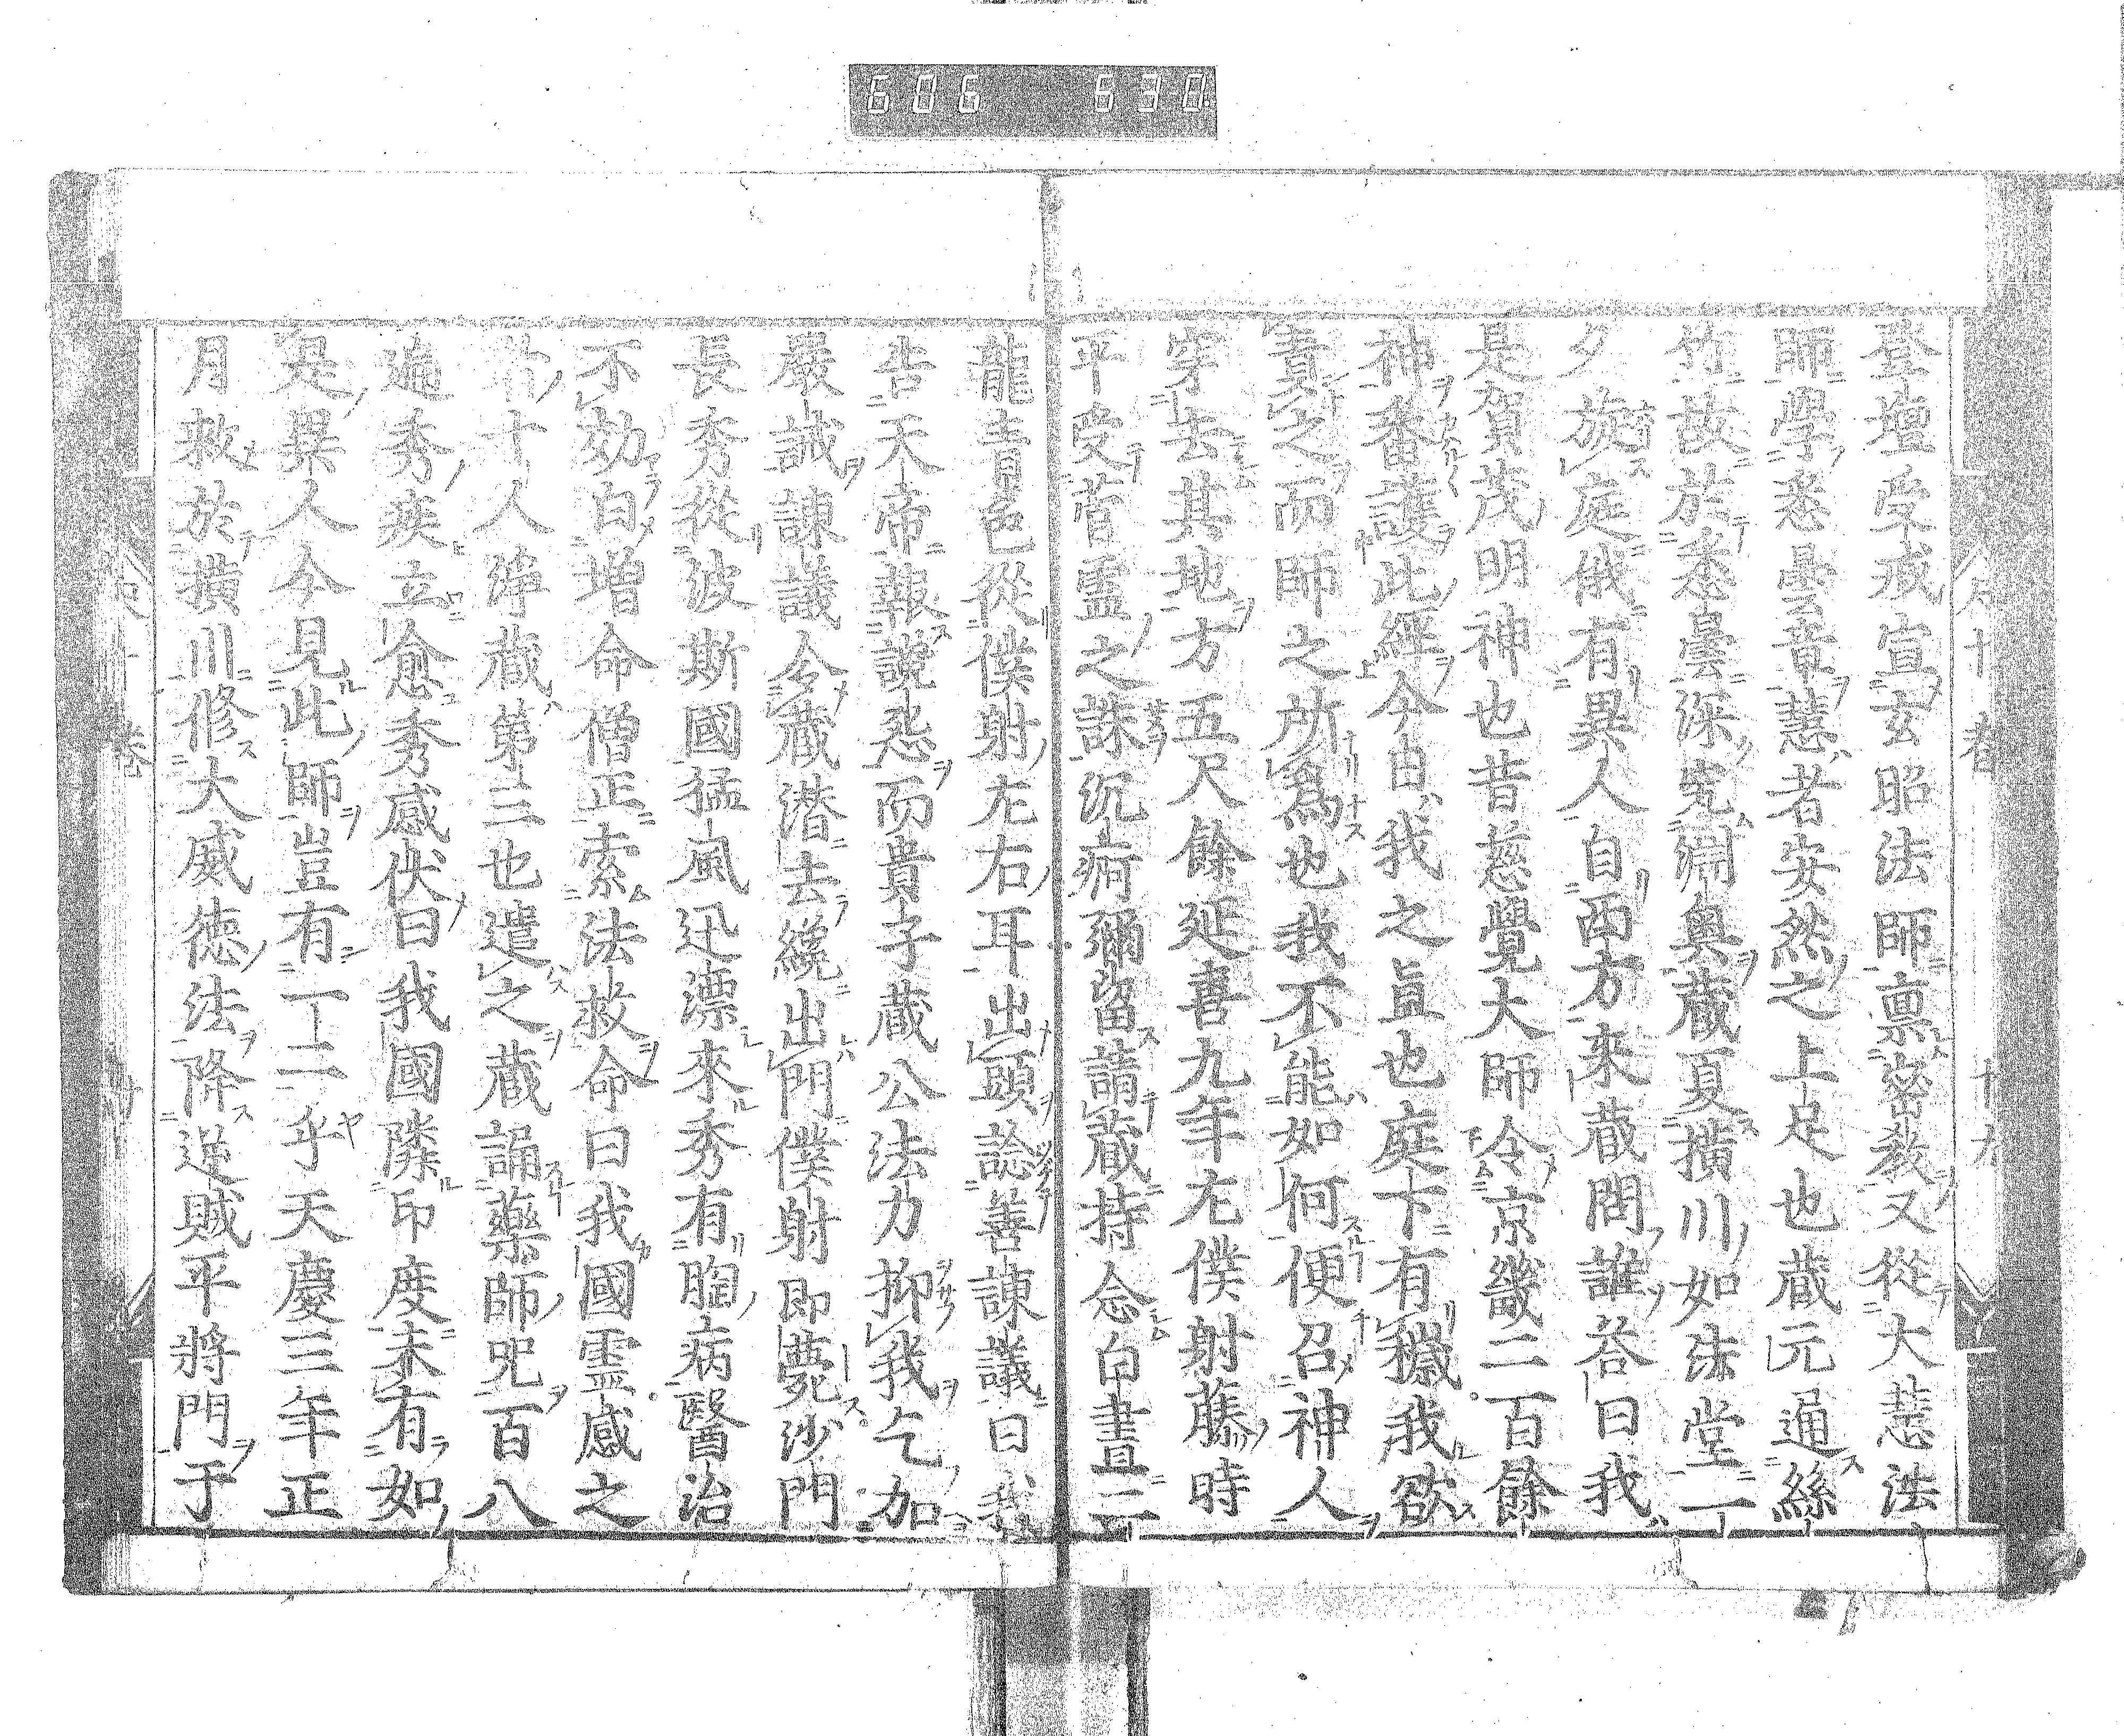 登壇受戒宣玄昭法師稟密教又從大慧法
師學悉曇章慧者安然之上足也蔵元通絲
竹故於悉曇深究淵奧蔵夏撗川如法堂一
夕旋庭俄有異人自西方来蔵問誰答曰我
是賀茂明神也昔慈覺大師令京畿二百餘
神番護此經今由我之直也庭下有穢我欲
責之而師之所爲也我不能如何便召神人
穿去其地方五尺餘延喜九年左僕射藤時
平受菅靈之誅沉痾彌留請蔵持念白晝二
龍青色從僕射左右耳出頭諗善諫議曰我
告天帝報讒惡而貴子蔵公法力抑我乞加
嚴誡諫議令蔵潜去纔出門僕射即薨沙門
長秀從波斯國猛風迅漂來秀有胸病醫治
不効白増命僧正索法救命曰我國靈感之
十人淨蔵第三也遣之蔵誦藥師咒百八
遍秀疾立愈秀感伏曰我國隣印度未有如
是異人今見此師豈有一二乎天慶三年正
月救於撗川修大威徳法降逆賊平將門于
606 630